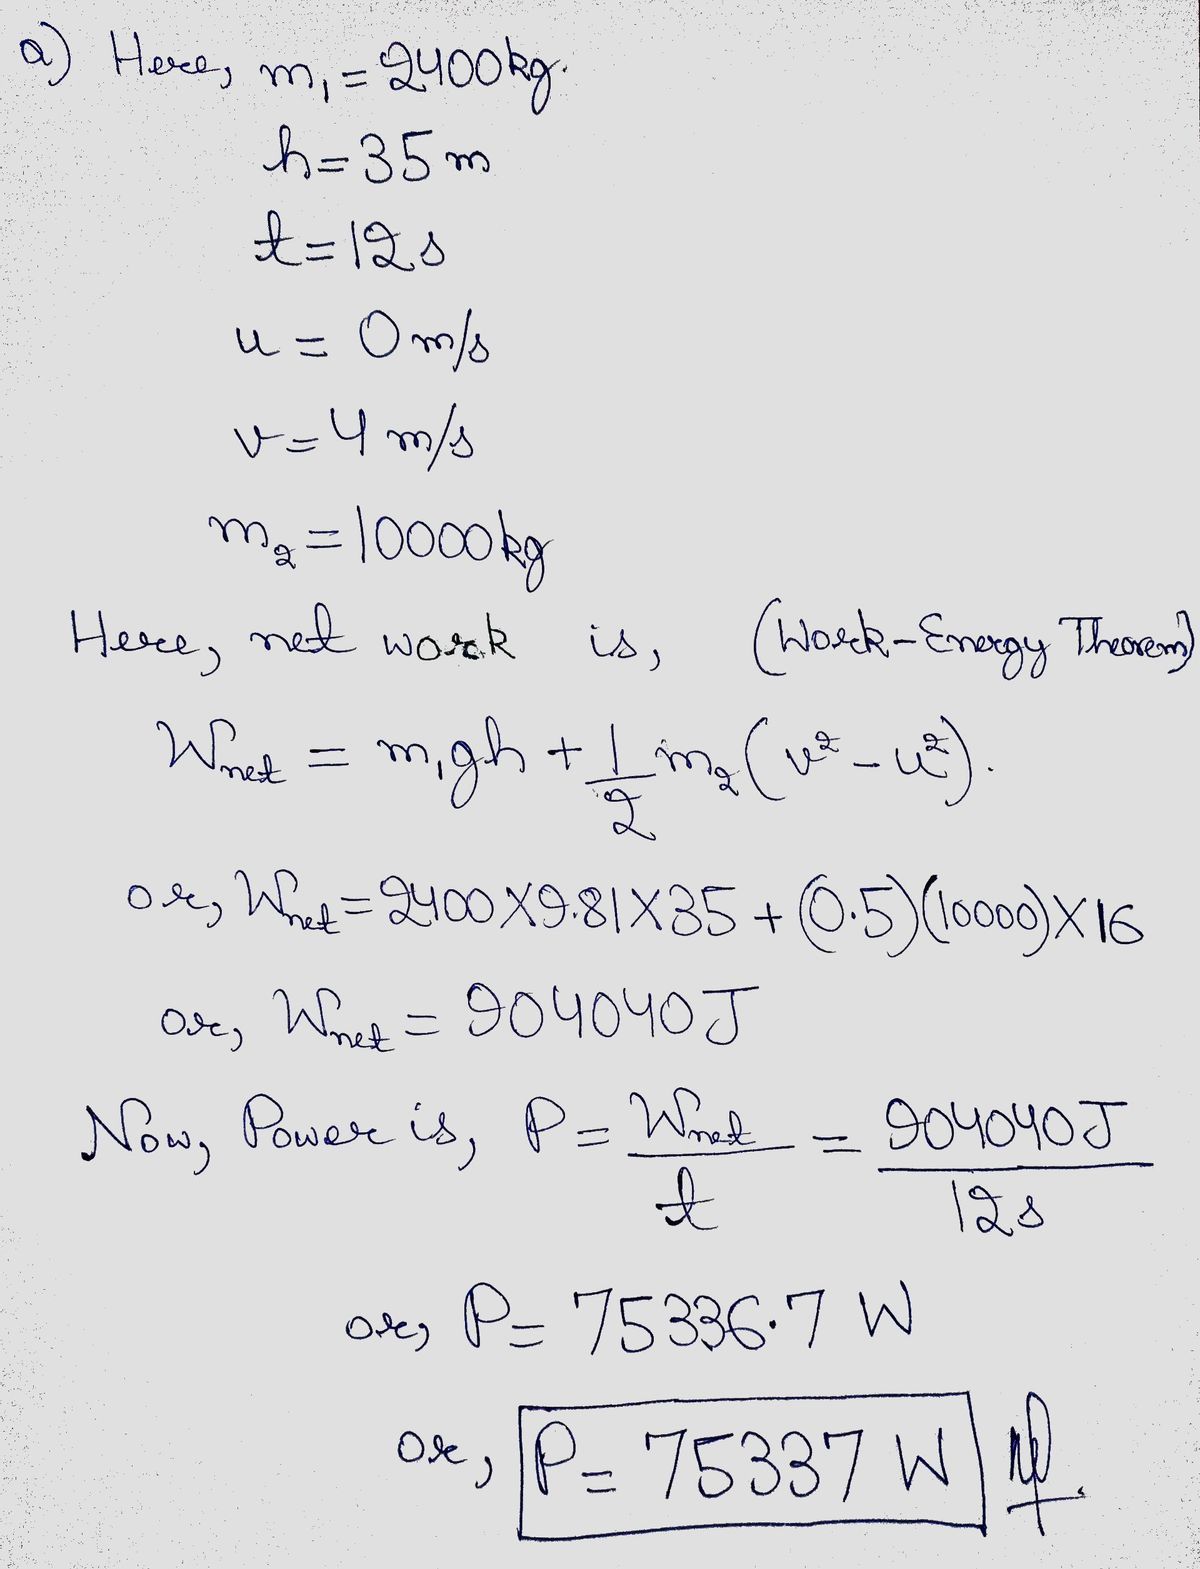 a) Here, m₁ = 2400kg.
h = 35 m
t = 12s
u = 0 m/s
v = 4 m/s
m₂ = 10000kg
Here, net work is, (Work-Energy Theorem)
Wnet = m₁gh + 1/2 m₂(v² - u²).
or, Wnet = 2400 X 9.81 X 35 + (0.5)(10000) X 16
or, Wnet = 904040J
Now, Power is, P = Wnet/t = 904040J/12s
or, P = 75336.7 W
or, P = 75337 W